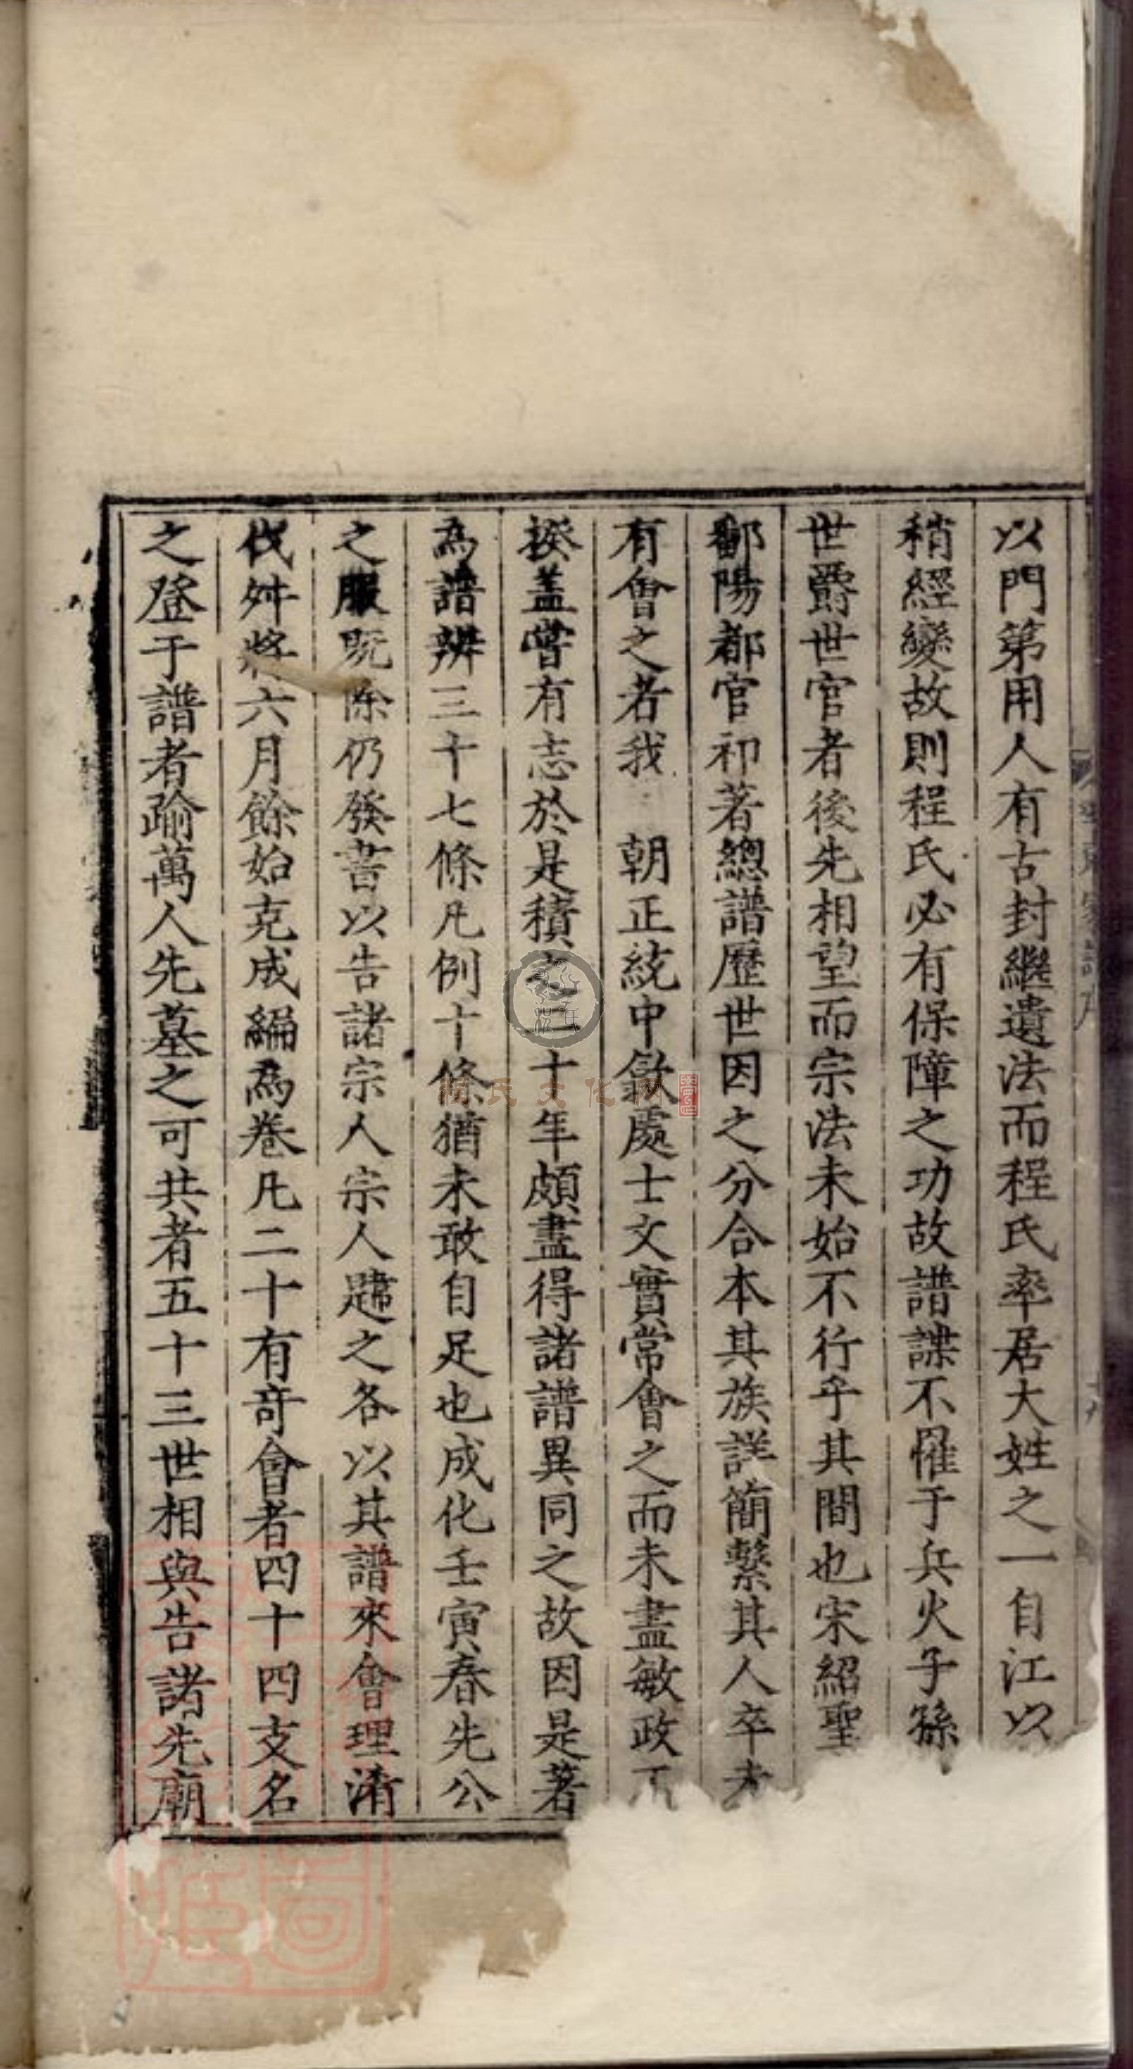 以門第用人有古封繼遺法而程氏率居大姓之一自江以
稍經變故則程氏必有保障之功故譜諜不罹于兵火子孫
世爵世官者後先相望而宗法未始不行乎其間也宋紹聖
鄱陽都官祁著總譜歷世因之分合本其族詳簡繫其人卒未
有會之者我 朝正統中歙處士文實常會之而未盡敏政不
揆蓋嘗有志於是積之二十年頗盡得諸譜異同之故因是著
為譜辨三十七條凡例十條猶未敢自足也成化壬寅春先公
之服既除仍發書以告諸宗人宗人韙之各以其譜來會理淆
伐舛將六月餘始克成編為卷凡二十有奇會者四十四支名
之登于譜者踰萬人先墓之可共者五十三世相與告諸先廟